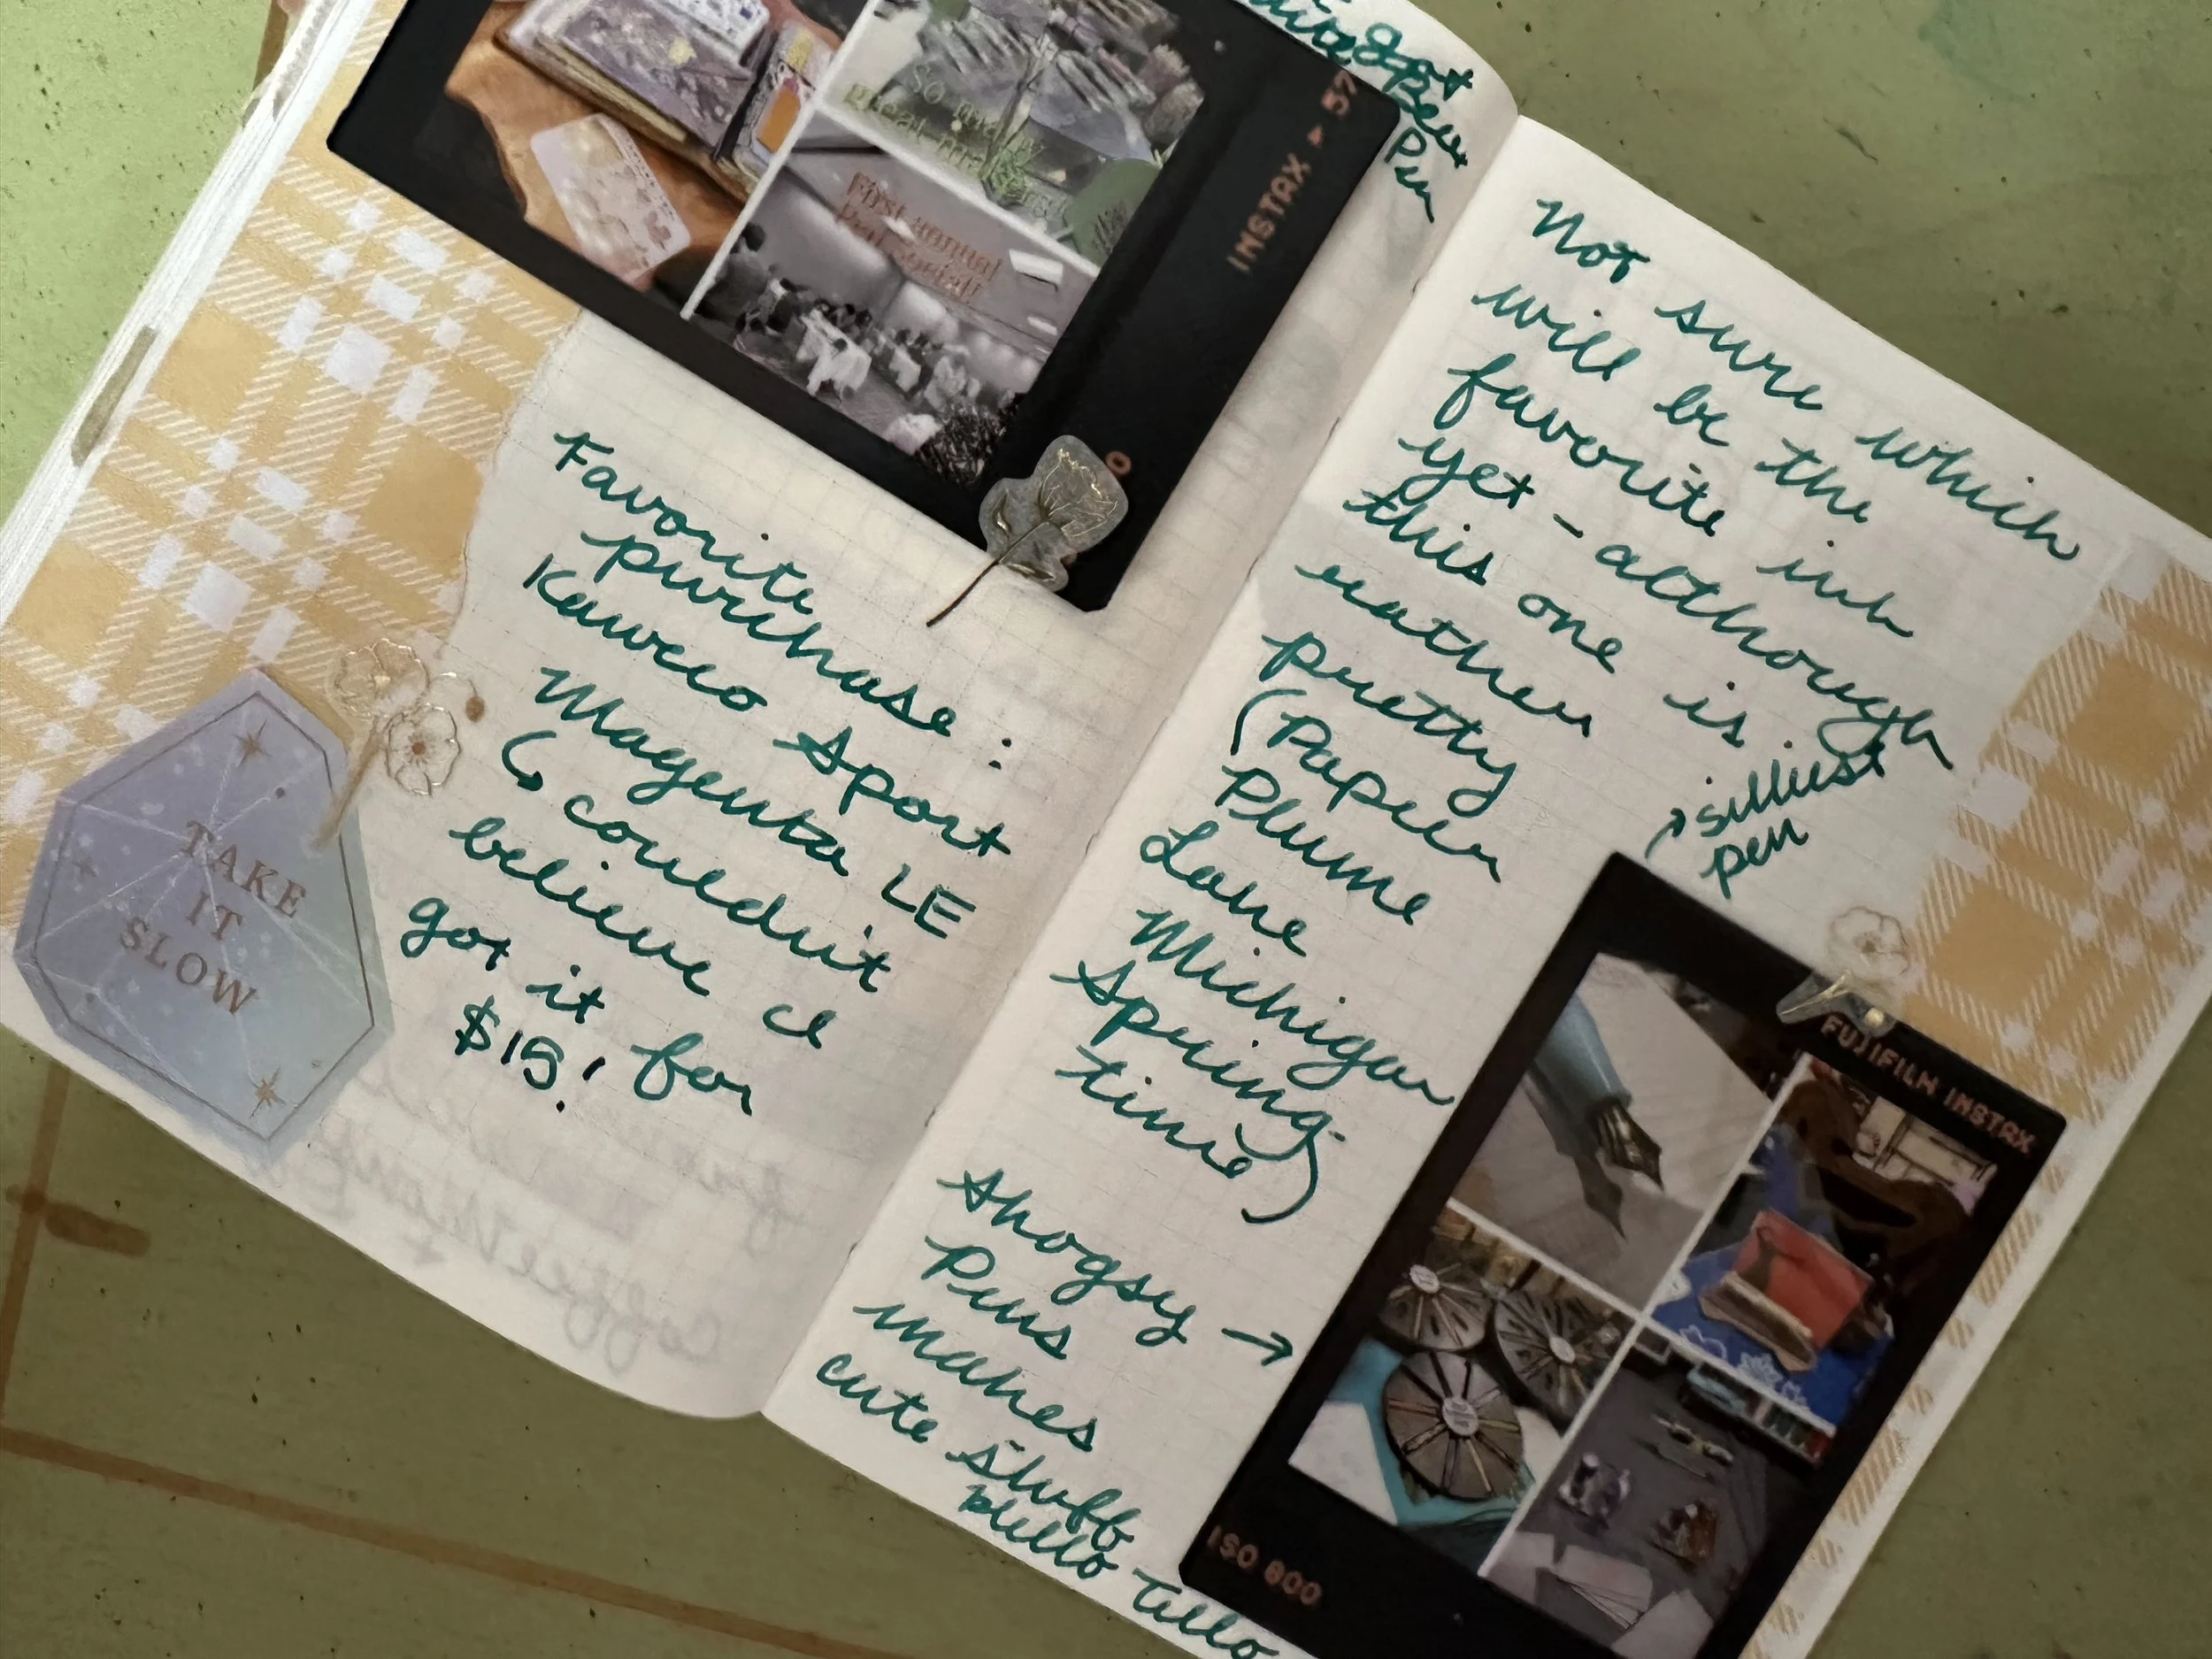 Pen
INSTAX ▸ 57
So many
great inks
First annual
0
Favorite
purchase:
Kaweco Sport
Magenta LE
↳ couldn't
believe I
got it for
$15!
TAKE
IT
SLOW
Not sure which
will be the
favorite ink
yet - although
this one is
rather
pretty
(Paper
Plume
Lake
Michigan
Spring-
time)
↗ silliest
pen
FUJIFILM INSTAX
Shogsy →
Pens
makes
cute stuff
hello Tello
ISO 800